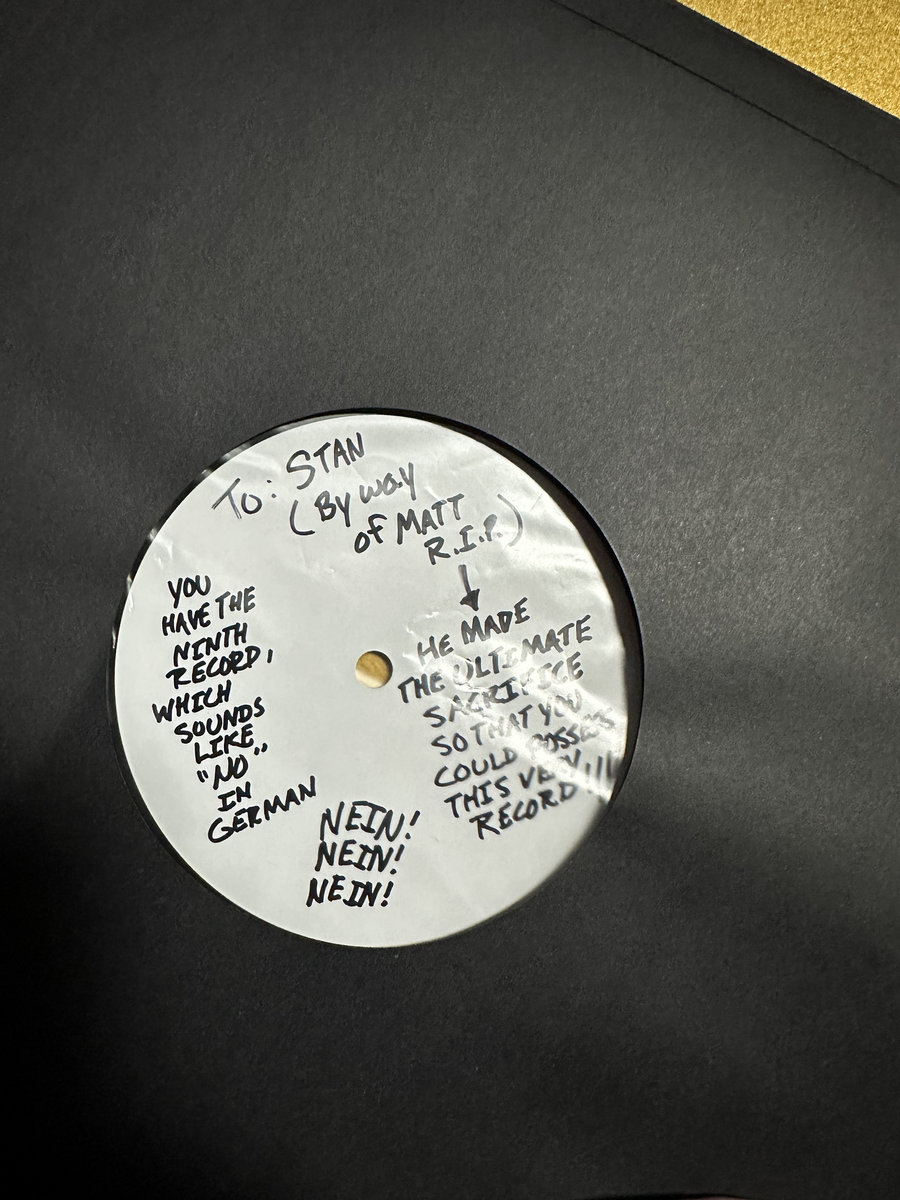 To: STAN
(By way
of MATT
R.I.P.)
YOU
HAVE THE
NINTH
RECORD,
WHICH
SOUNDS
LIKE
"NO"
IN
GERMAN
NEIN!
NEIN!
NEIN!
HE MADE
THE ULTIMATE
SACRIFICE
SO THAT YOU
COULD POSSESS
THIS VERY
RECORD